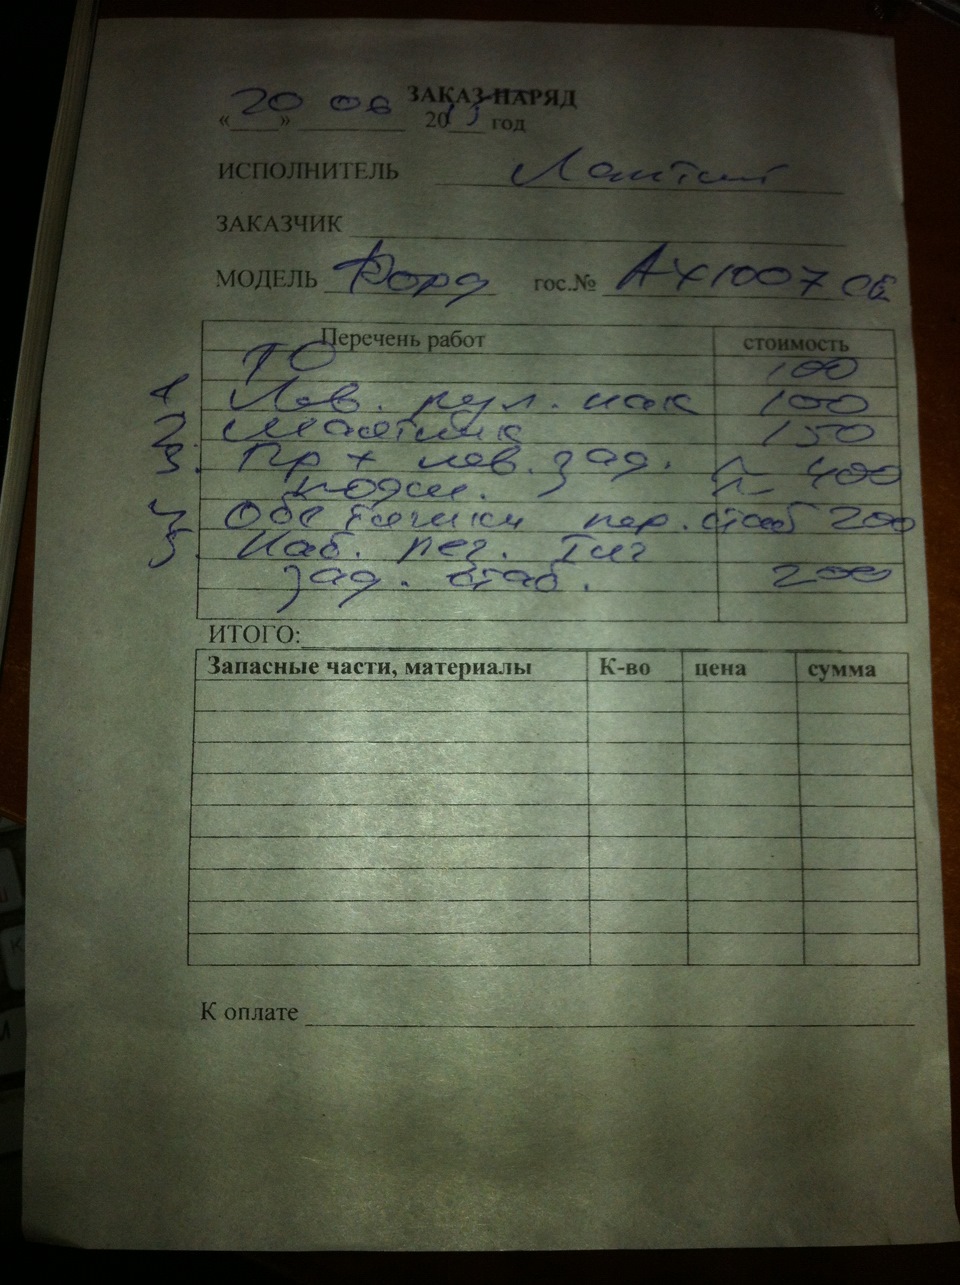 ЗАКАЗ-НАРЯД
«20» 06 2013 год
ИСПОЛНИТЕЛЬ
ЗАКАЗЧИК
МОДЕЛЬ Форд гос.№ АХ1007СЕ
Перечень работ стоимость
ТО 100
1 Лев. рул. нак 100
2. маятник 150
3. Пр + лев. зад. ~ 400
подш.
4 Обе тягики пер. стаб 200
5. Наб.
зад. стаб. 200
ИТОГО:
Запасные части, материалы К-во цена сумма
К оплате